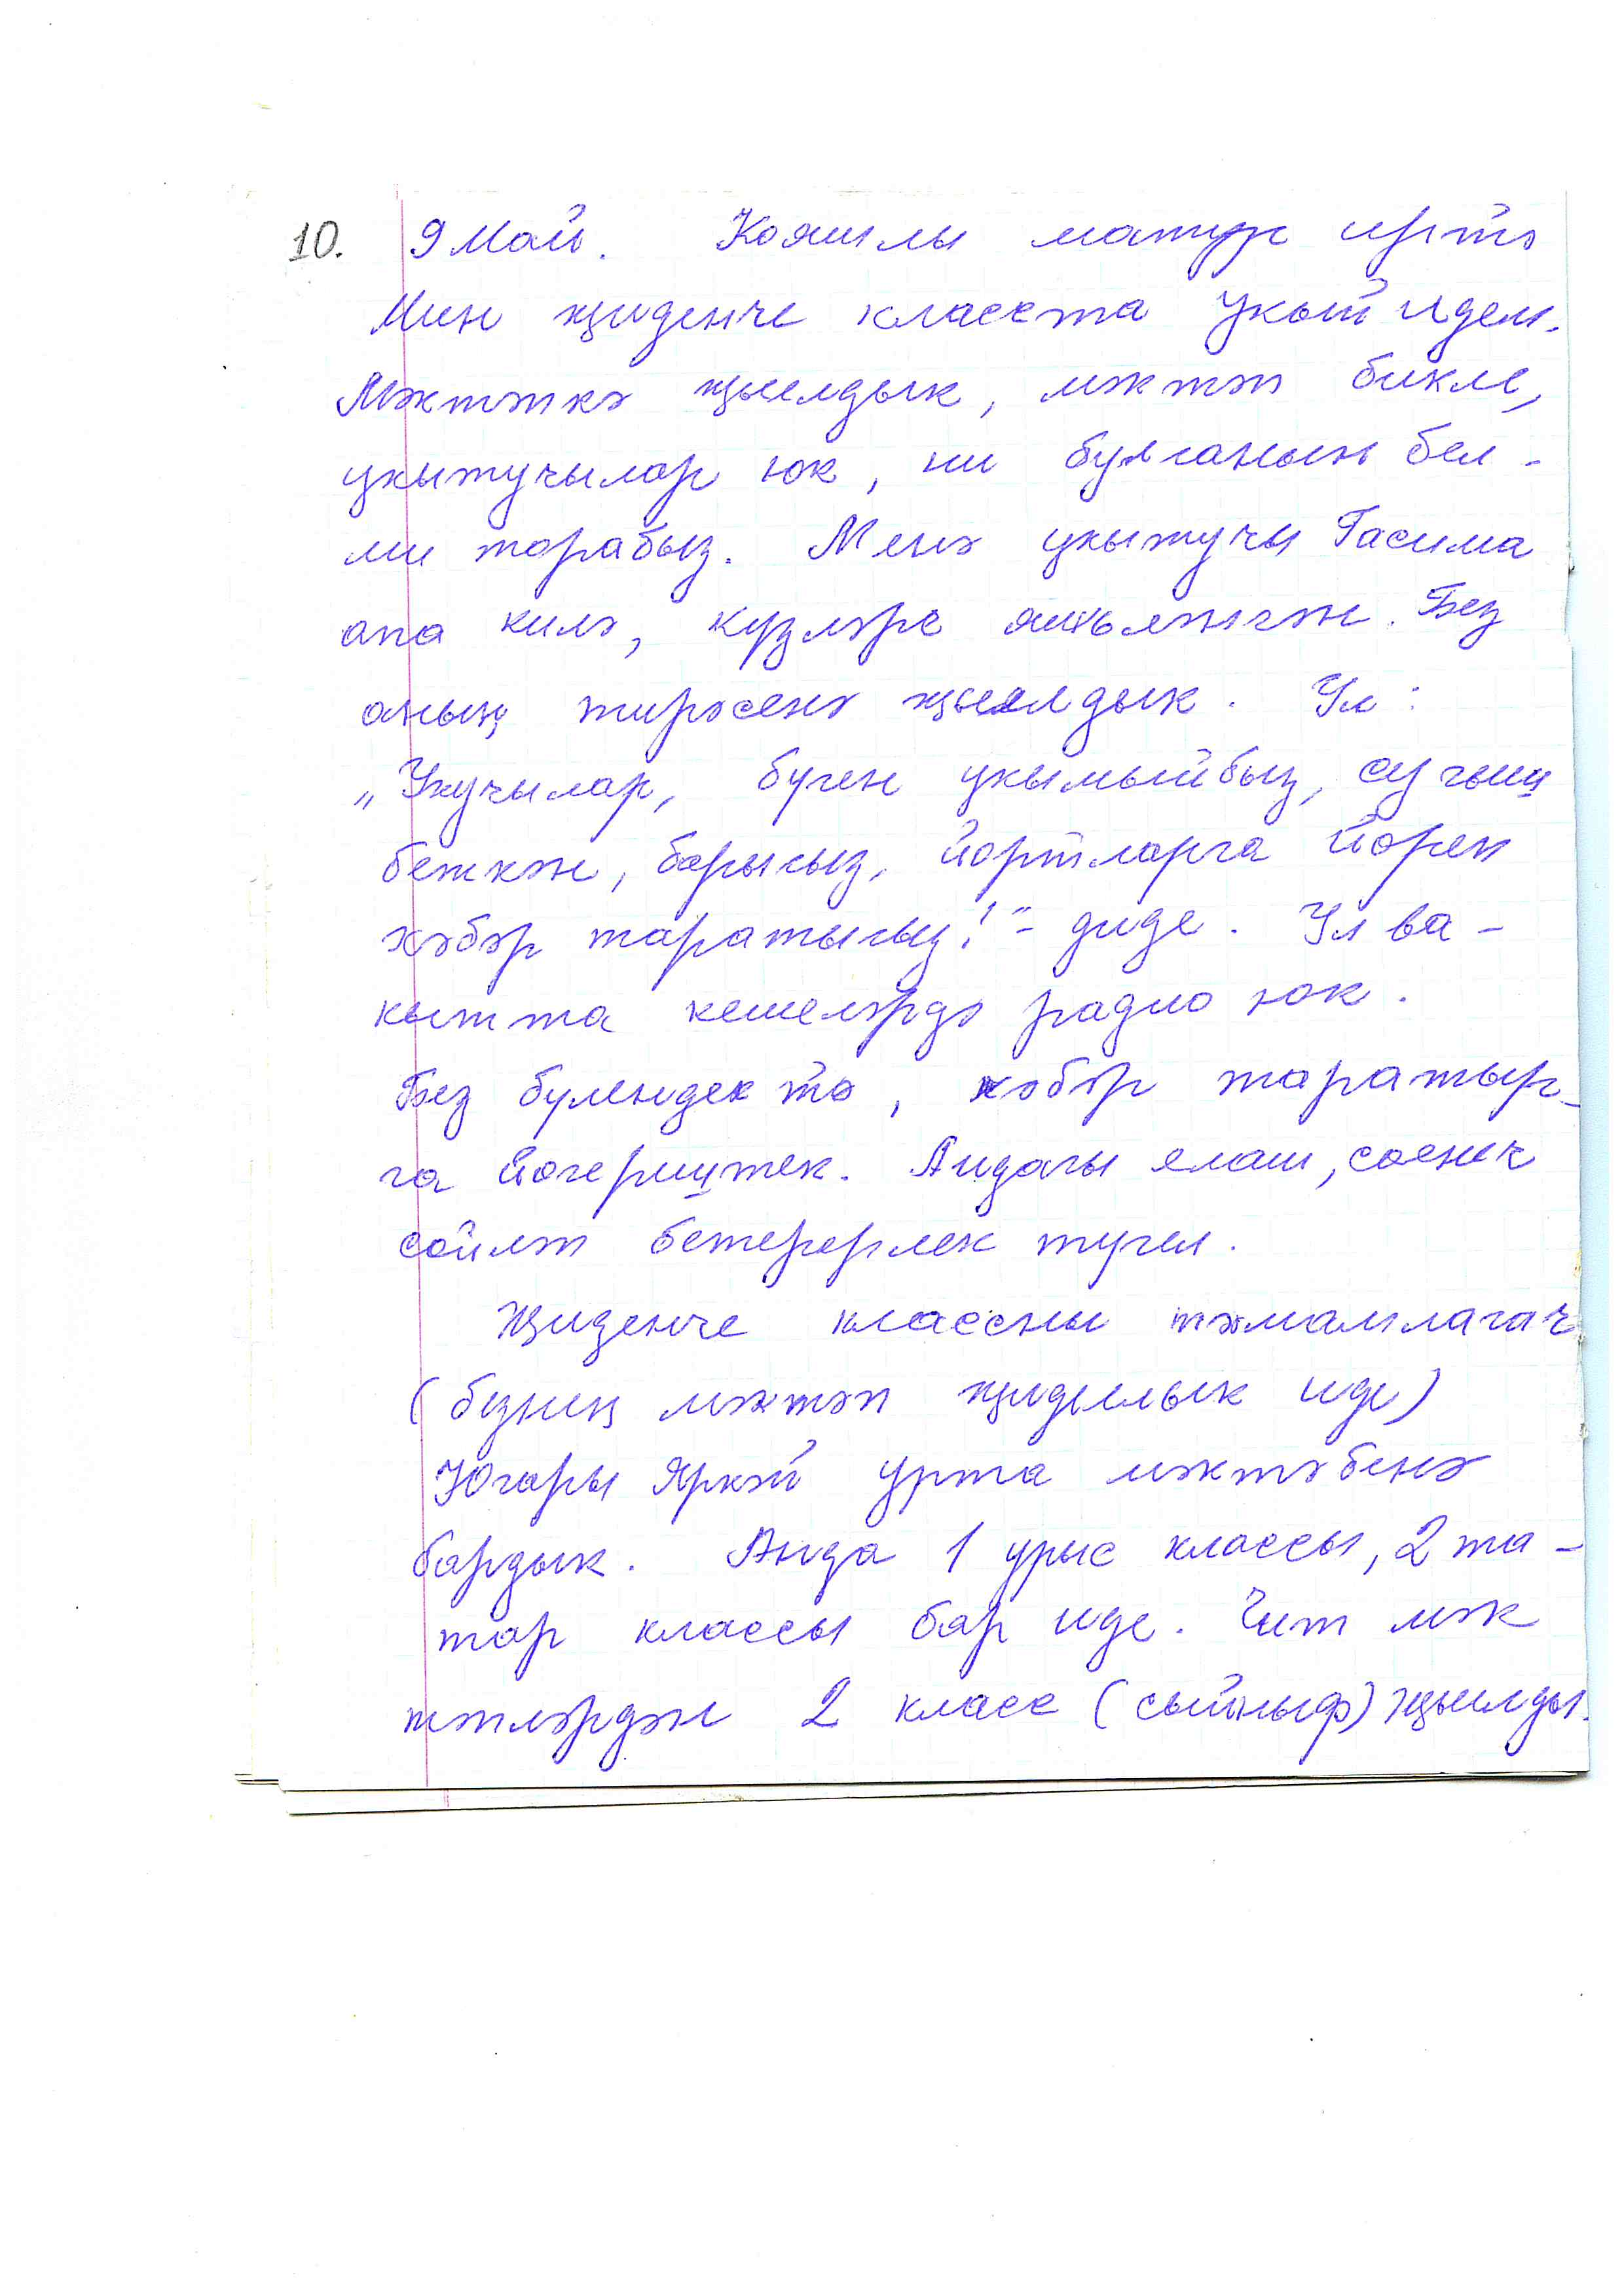 10. 9 Май. Кояшлы матур иртә
Мин җиденче класста укый идем.
Мәктәпкә җыелдык, мәктәп бикле,
укытучылар юк, ни булганын бел-
ми торабыз. Менә укытучы Гасима
апа килә, күзләре яшьләнгән. Без
аның тирәсенә җыелдык. Ул:
„Укучылар, бүген укымыйбыз, сугыш
беткән, барыгыз, йортларга йөреп
хәбәр таратыгыз!"- диде. Ул ва-
кытта кешеләрдә радио юк.
Без бүлендек тә, хәбәр таратыр-
га йөгерештек. Андагы елаш, сөенеч
сөйләп бетерерлек түгел.
Җиденче классны тәмамлагач
(безнең мәктәп җидееллык иде)
Югары Яркәй урта мәктәбенә
бардык. Анда 1 урыс классы, 2 та-
тар классы бар иде. Чит мәк
тәпләрдән 2 класс (сыйныф) җыелды.